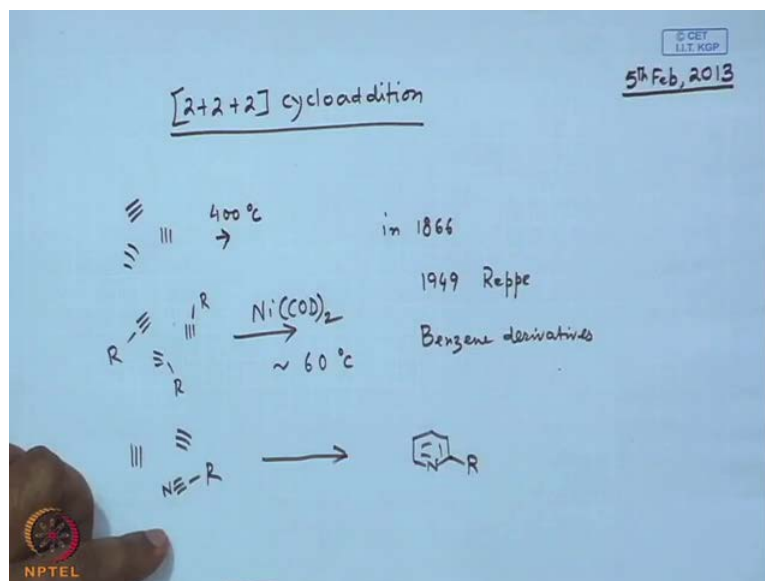 © CET
I.I.T. KGP
5th Feb, 2013
[2+2+2] cycloaddition
400 °C
in 1866
1949 Reppe
R
R
R
Ni(COD)2
~ 60 °C
Benzene derivatives
N
R
N
R
NPTEL